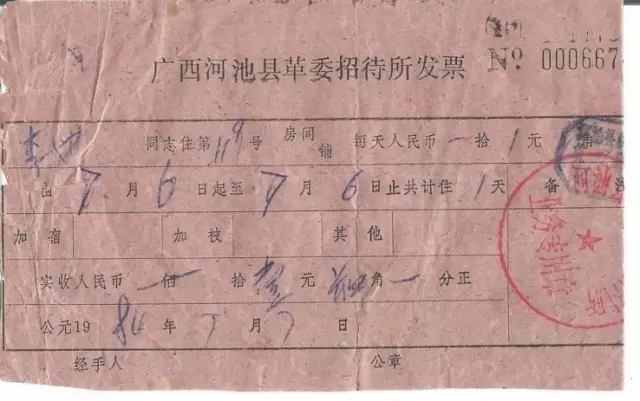 广西河池县革委招待所发票
№ 000667
同志住第119号 房间 铺 每天人民币一拾1元 角
自7月6日起至7月6日止共计住1天 备
加宿 加被 其他
实收人民币一佰 拾壹元 角一分正
公元1984年7月7日
经手人 公章